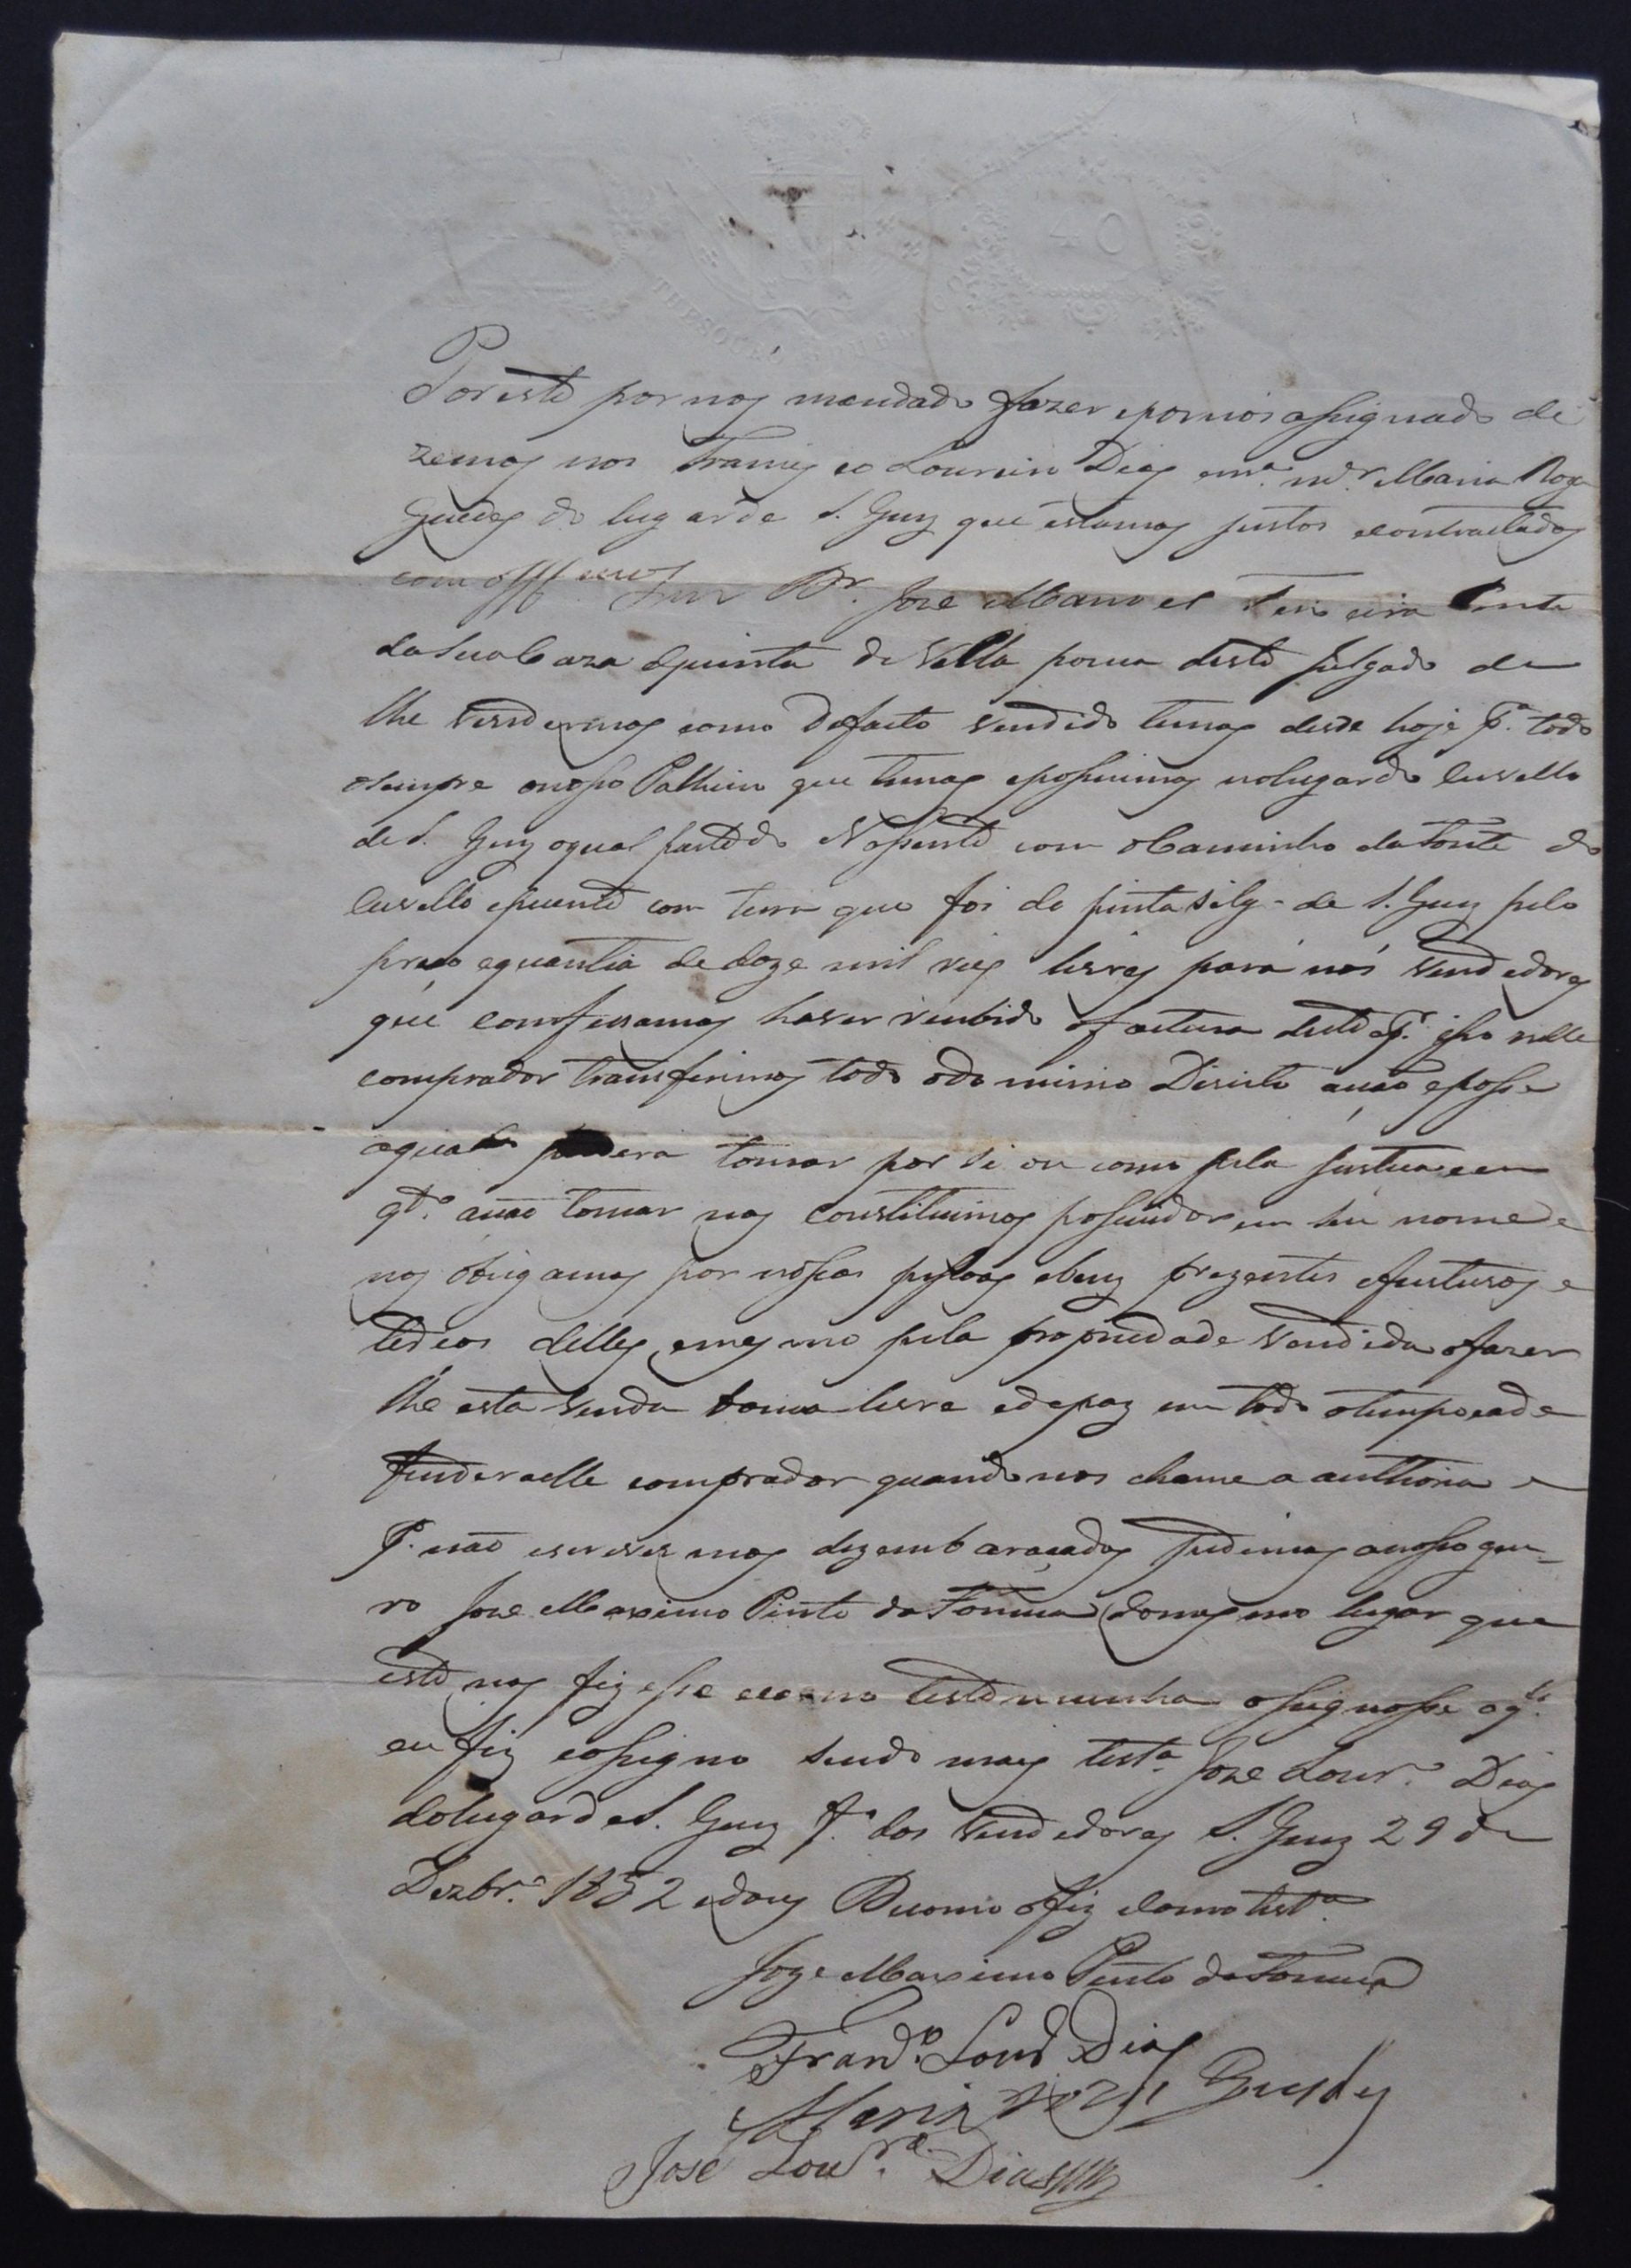 THESOURO PUBLICO
40
Por este por nos mandado fazer e por nós assignado di
zemos nos Francisco Lourenço Dias e m.ª m.er Maria Roza
Guedes do lugar de S. Gens que estamos justos e contractados
com o Snr Dr. Joze Manoel Teixeira
da Sua Caza e quinta de Villa deste julgado de
lhe vendermos como de facto vendido temos desde hoje p.ª todo
o sempre o nosso Palheiro que temos e possuimos no lugar do Cuvello
de S. Gens o qual parte do Nascente com o Caminho da Fonte do
Cuvello e puente com terra que foi do pintasilgo de S. Gens pelo
preço e quantia de doze mil reis livres para nós vendedores
que confessamos haver recebido o factura deste e p.r isso nelle
comprador transferimos todo o dominio Direito acção e posse
a qual podera tomar por si ou como pela justiça e em
q.to a não tomar nos constituimos possuidores em seu nome e
nos obrigamos por nossas pessoas e bens prezentes e futuros e
terços delles e mesmo pela propriedade vendida a fazer
lhe esta venda bôa livre e de paz em todo o tempo e a de
fender a elle comprador quando nos chame a authoria e
p.r não escrevermos dezembaraçados pedimos a nosso gen
ro Joze Maximo Pinto da Fonseca do mesmo lugar que
este nos fizesse e como testemunha assignasse o q.l
eu fiz e assigno sendo mais test.ª Joze Lour.º Dias
do lugar de S. Gens f.º dos vendedores S. Gens 29 de
Dezbr.º 1852 e dous Ru como o fiz e como test.ª
Joze Maximo Pinto da Fonseca
Fran.co Lour.º Dias
Maria Roza Guedes
José Lour.ço Dias